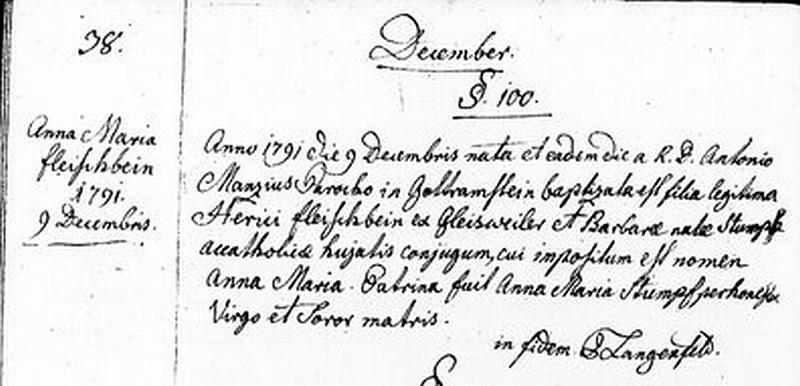 38.
December.
§. 100.
Anna Maria
fleischbein
1791.
9 Decembris.
Anno 1791 die 9 Decembris nata et eadem die a R. D. Antonio
Manzius Parocho in Gottramstein baptizata est filia legitima
Henrici fleischbein ex Gleisweiler et Barbaræ natæ Stumpf
accatholicæ hujatis conjugum, cui impositum est nomen
Anna Maria. Patrina fuit Anna Maria Stumpf
Virgo et Soror matris.
in fidem Langenfeld.
§